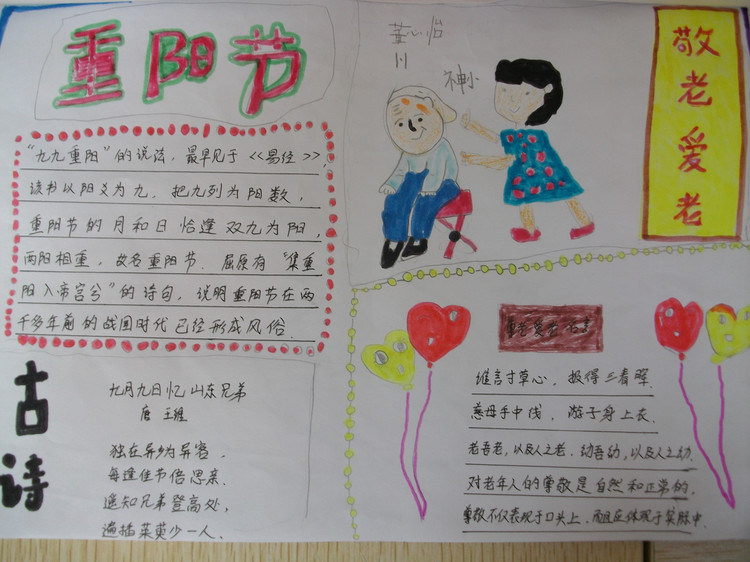 重阳节
"九九重阳"的说法，最早见于<<易经>>，
该书以阳爻为九，把九列为阳数，
重阳节的月和日恰逢双九为阳，
两阳相重，故名重阳节．屈原有"集重
阳入帝宫兮"的诗句，说明重阳节在两
千多年前的战国时代已经形成风俗．
古诗
九月九日忆山东兄弟
唐 王维
独在异乡为异客．
每逢佳节倍思亲．
遥知兄弟登高处，
遍插茱萸少一人．
董心怡
神
敬老爱老
谁言寸草心，报得三春晖．
慈母手中线，游子身上衣．
老吾老，以及人之老．幼吾幼，以及人之幼．
对老年人的尊敬是自然和正常的．
尊敬不仅表现于口头上，而且应体现于实际中．